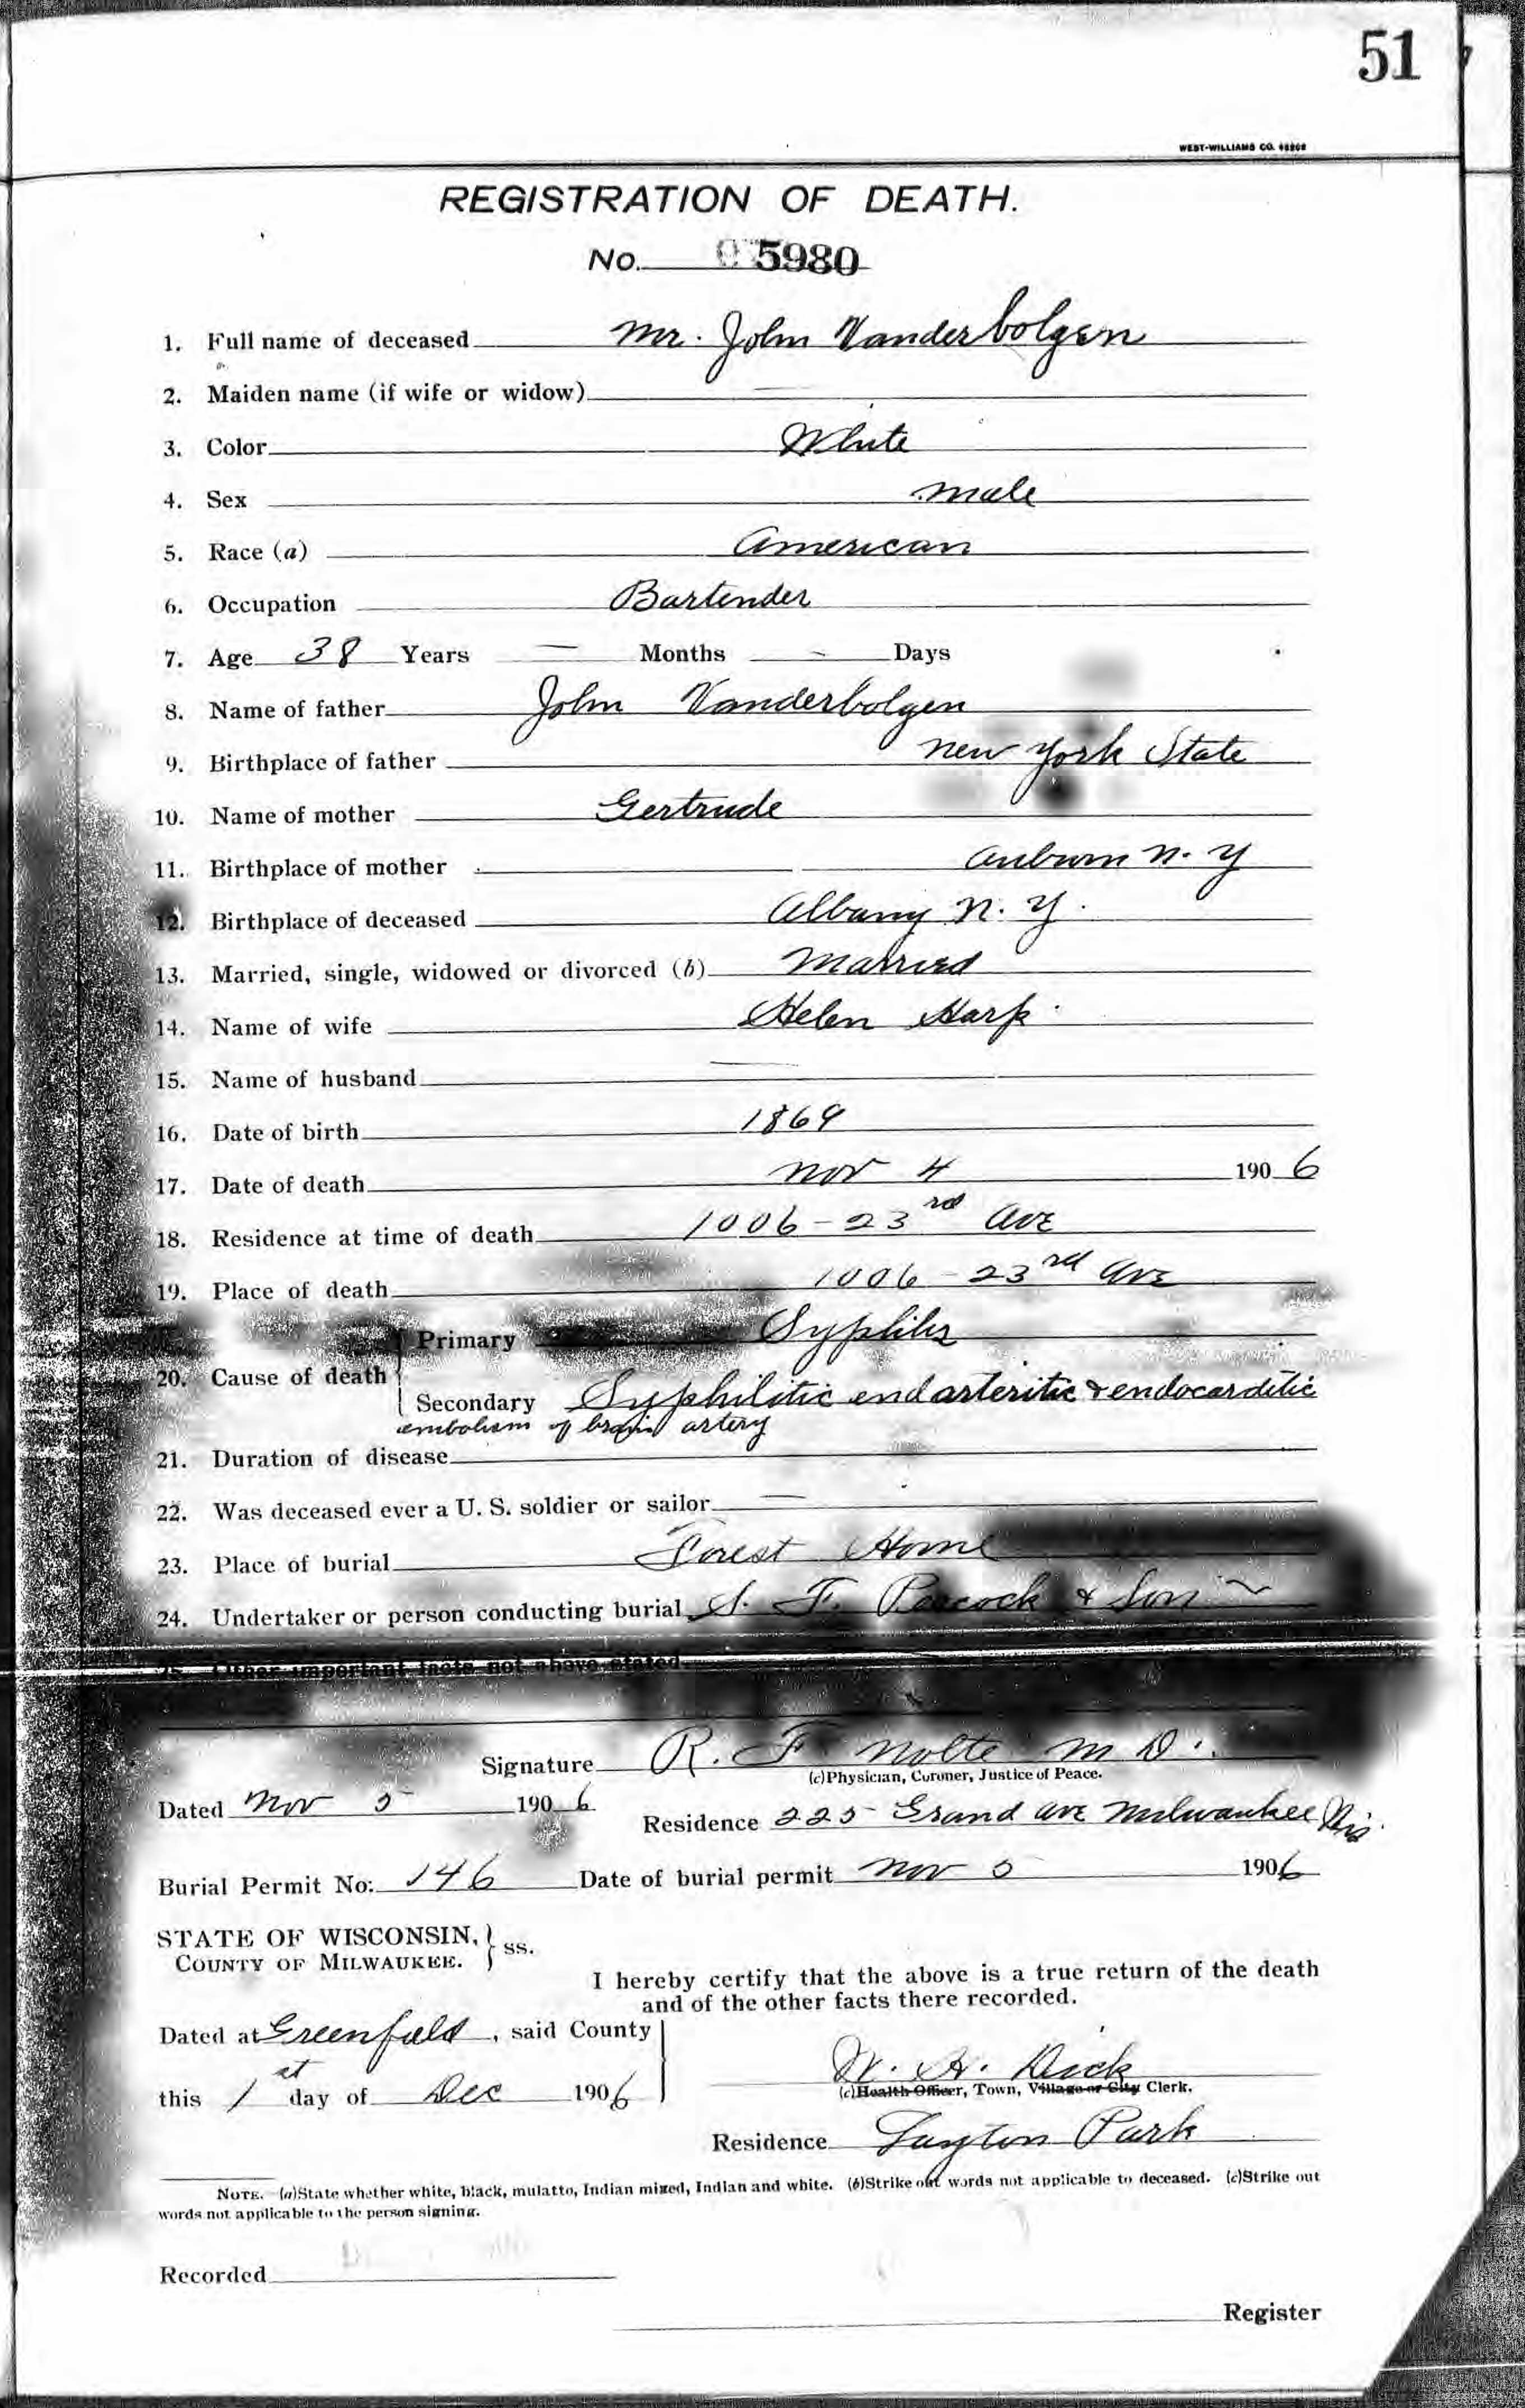 51
WEST-WILLIAMS CO.
REGISTRATION OF DEATH.
No. 5980
1. Full name of deceased Mr. John Vanderbolgen
2. Maiden name (if wife or widow) —
3. Color White
4. Sex male
5. Race (a) American
6. Occupation Bartender
7. Age 38 Years — Months - Days
8. Name of father John Vanderbolgen
9. Birthplace of father New York State
10. Name of mother Gertrude
11. Birthplace of mother Auburn N. Y
12. Birthplace of deceased Albany N. Y.
13. Married, single, widowed or divorced (b) Married
14. Name of wife Helen Harp
15. Name of husband —
16. Date of birth
17. Date of death Nov 4 1906
18. Residence at time of death 1006 - 23rd Ave
19. Place of death 1006 - 23rd Ave
Primary Syphilis
20. Cause of death
Secondary Syphilitic endarteritic & endocarditic
embolism of brain artery
21. Duration of disease
22. Was deceased ever a U. S. soldier or sailor —
23. Place of burial Forest Home
24. Undertaker or person conducting burial S. F. Peacock & Son
25. Other important facts not above stated
Signature R. F. Nolte M D.
(c)Physician, Coroner, Justice of Peace.
Dated Nov 5 1906
Residence 225 Grand Ave Milwaukee Wis.
Burial Permit No: 146 Date of burial permit Nov 5 1906
STATE OF WISCONSIN,
COUNTY OF MILWAUKEE. ss.
I hereby certify that the above is a true return of the death
and of the other facts there recorded.
Dated at Greenfield, said County
this 1st day of Dec 1906
W. H. Dick
(c)Health Officer, Town, Village or City Clerk.
Residence Layton Park
NOTE. (a)State whether white, black, mulatto, Indian mixed, Indian and white. (b)Strike out words not applicable to deceased. (c)Strike out
words not applicable to the person signing.
Recorded
Register